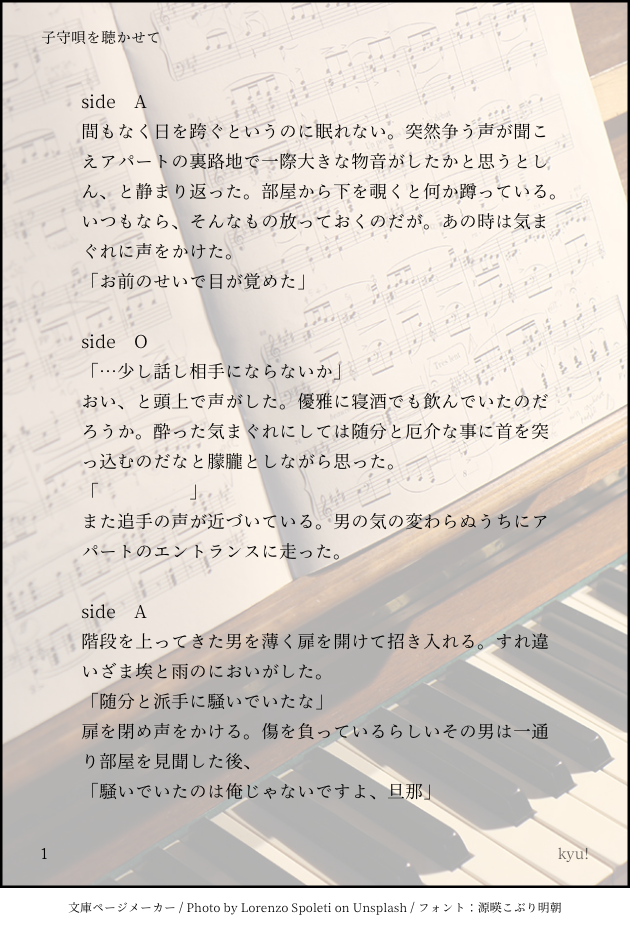 子守唄を聴かせて
side A
間もなく日を跨ぐというのに眠れない。突然争う声が聞こ
えアパートの裏路地で一際大きな物音がしたかと思うとし
ん、と静まり返った。部屋から下を覗くと何か蹲っている。
いつもなら、そんなもの放っておくのだが。あの時は気ま
ぐれに声をかけた。
「お前のせいで目が覚めた」
side O
「…少し話し相手にならないか」
おい、と頭上で声がした。優雅に寝酒でも飲んでいたのだ
ろうか。酔った気まぐれにしては随分と厄介な事に首を突
っ込むのだなと朦朧としながら思った。
「　　　　　」
また追手の声が近づいている。男の気の変わらぬうちにア
パートのエントランスに走った。
side A
階段を上ってきた男を薄く扉を開けて招き入れる。すれ違
いざま埃と雨のにおいがした。
「随分と派手に騒いでいたな」
扉を閉め声をかける。傷を負っているらしいその男は一通
り部屋を見聞した後、
「騒いでいたのは俺じゃないですよ、旦那」
1
kyu!
文庫ページメーカー / Photo by Lorenzo Spoleti on Unsplash / フォント：源暎こぶり明朝